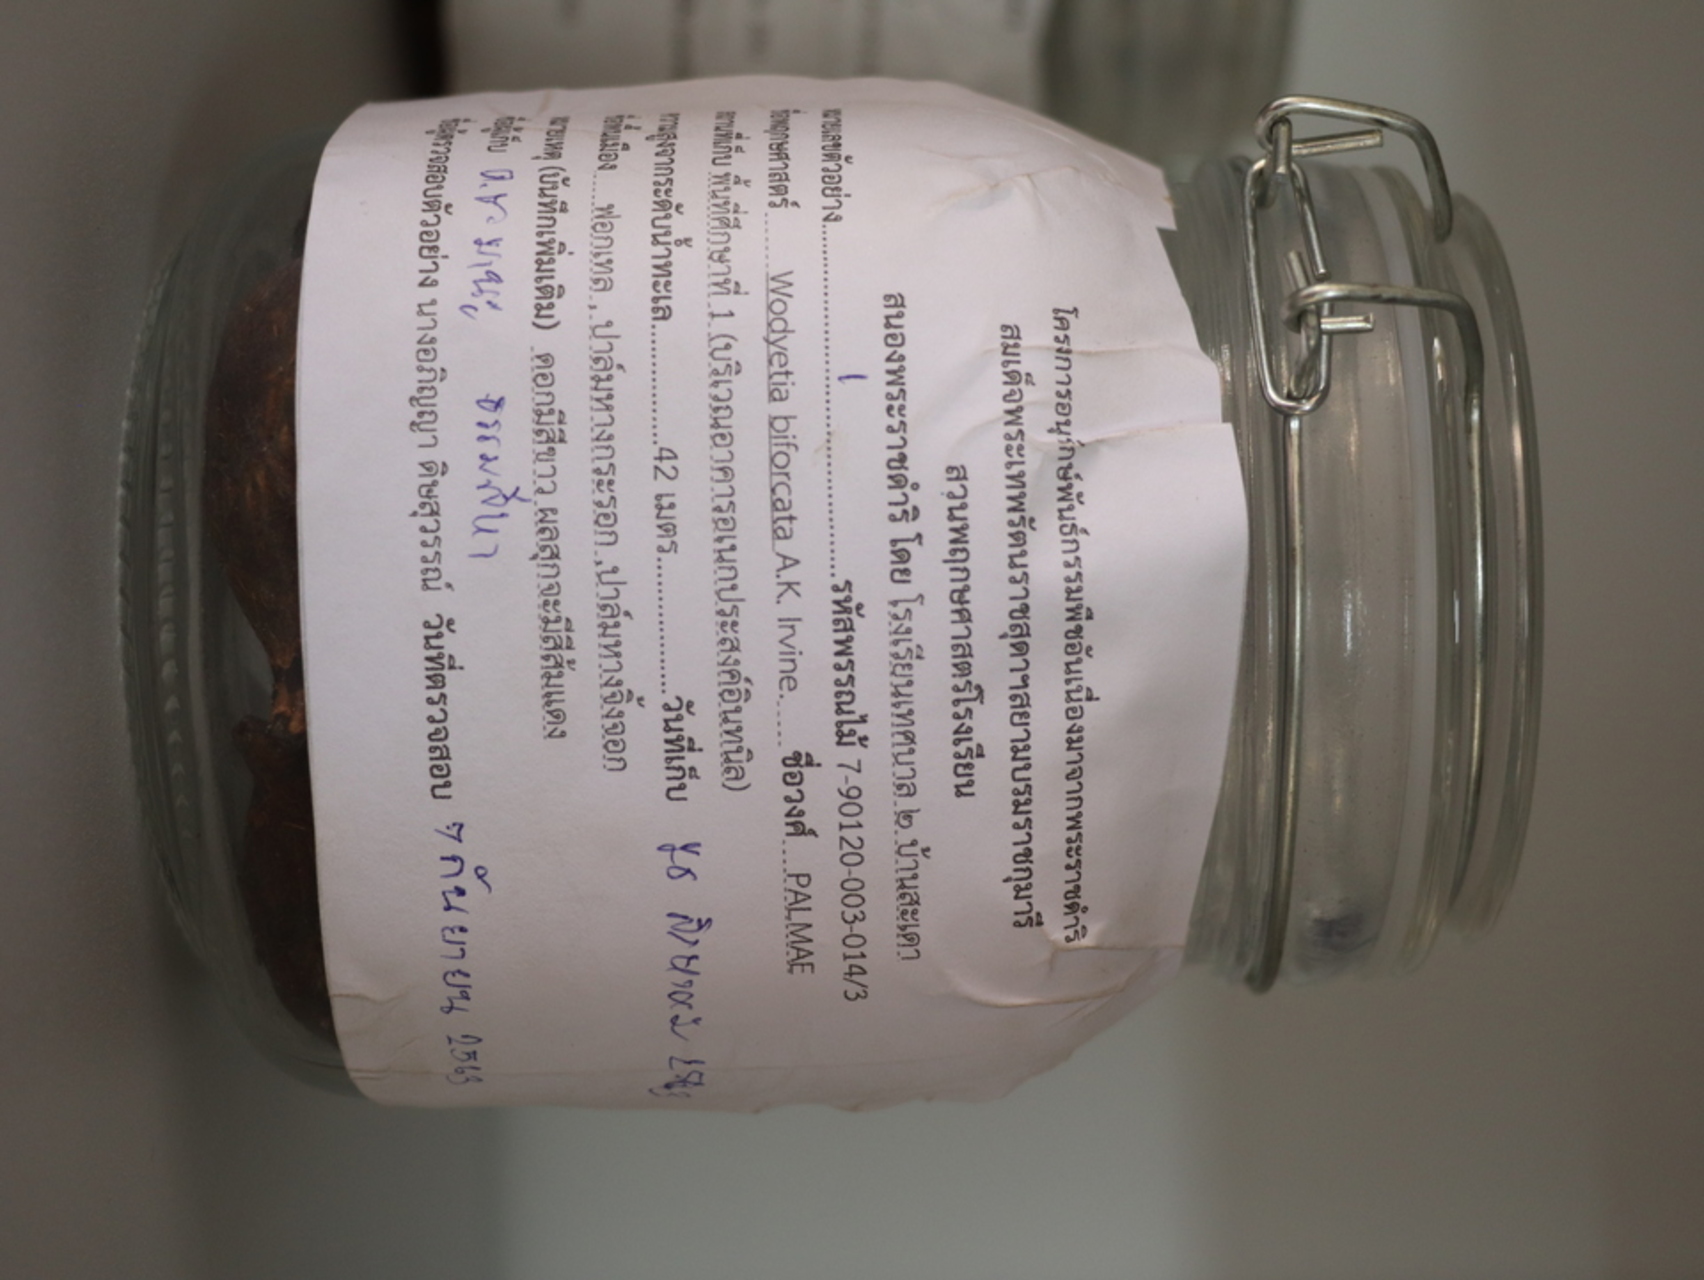 โครงการอนุรักษ์พันธุ์กรรมพืชอันเนื่องมาจากพระราชดำริ
สมเด็จพระเทพรัตนราชสุดาฯสยามบรมราชกุมารี
สวนพฤกษศาสตร์โรงเรียน
สนองพระราชดำริ โดย โรงเรียนเทศบาล ๒ บ้านสะเดา
หมายเลขตัวอย่าง..........1..........รหัสพรรณไม้ 7-90120-003-014/3
ชื่อพฤกษศาสตร์......Wodyetia biforcata A.K. Irvine......ชื่อวงศ์....PALMAE
สถานที่เก็บ พื้นที่ศึกษาที่ 1 (บริเวณอาคารอเนกประสงค์อินทนิล)
ความสูงจากระดับน้ำทะเล..........42 เมตร..........วันที่เก็บ สิงหาคม
ชื่อพื้นเมือง....ฟอกเทล , ปาล์มหางกระรอก ,ปาล์มหางจิ้งจอก
หมายเหตุ (บันทึกเพิ่มเติม) ดอกมีสีขาว ผลสุกจะมีสีส้มแดง
ชื่อผู้เก็บ ด.ช.
ชื่อผู้ตรวจสอบตัวอย่าง นางอภิญญา ดิษสุวรรณ์ วันที่ตรวจสอบ ๆ กันยายน 2563